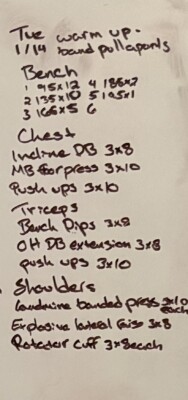 Tue warm up-
1/14 band pull aparts
Bench
1 95x12 4 185x2
2 135x10 5 195x1
3 165x5 6
Chest
Incline DB 3x8
MB floor press 3x10
Push ups 3x10
Triceps
Bench Dips 3x8
OH DB extension 3x8
push ups 3x10
Shoulders
Landmine banded press 3x10 each
Explosive lateral raise 3x8
Rotator cuff 3x8 each